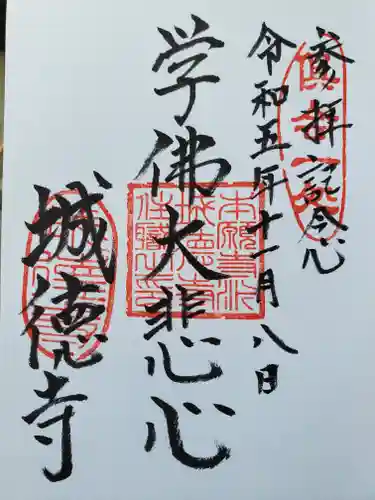 参拝記念
令和五年十一月八日
学佛大悲心
城徳寺